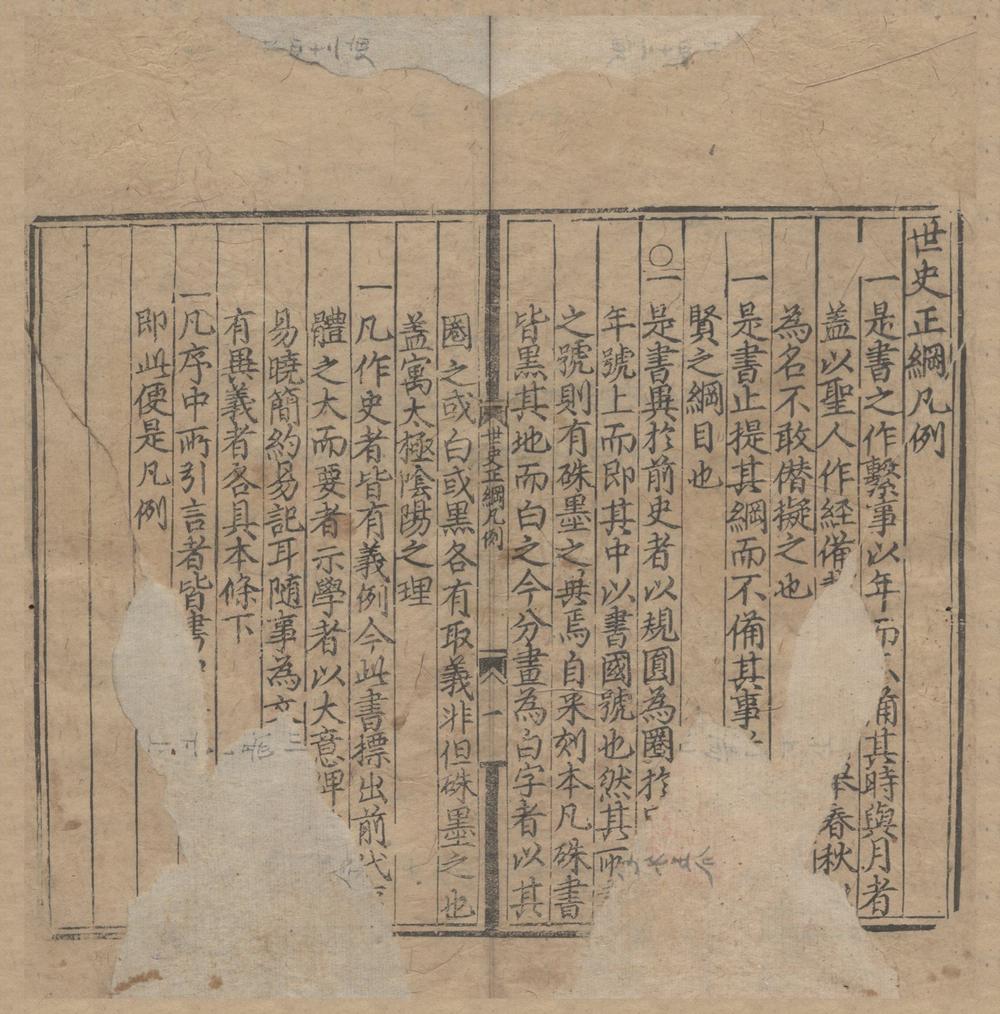 世史正綱凡例
一是書之作繫事以年而不備其時與月者
蓋以聖人作經備春秋
為名不敢僣擬之也
一是書止提其綱而不備其事
賢之綱目也
〇一是書異於前史者以規圓為圈於
年號上而即其中以書國號也然其所
之號則有硃墨之異焉自來刻本凡硃書
皆黑其地而白之今分畫為白字者以其
世史正綱凡例
一
圈之或白或黑各有取義非但硃墨之也
蓋寓太極陰陽之理
一凡作史者皆有義例今此書摽出前代
體之大而要者示學者以大意俾
易曉簡約易記耳随事為文
有異義者各具本條下
一凡序中所引言者皆書
即此便是凡例